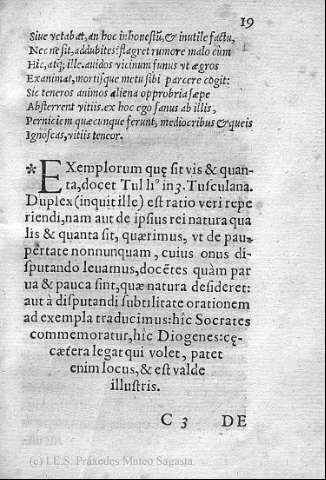 19
Siue vetabat, an hoc inhonestũ, & inutile factu,
Nec ne sit, addubites? flagret rumore malo cùm
Hic, atq; ille. auidos vicinum funus vt ægros
Exanimat, mortisque metu sibi parcere cogit:
Sic teneros animos aliena opprobria sæpe
Absterrent vitiis. ex hoc ego sanus ab illis,
Perniciem quæcunque ferunt, mediocribus & queis
Ignoscas, vitiis teneor.
* EXemplorum quę sit vis & quan-
ta, docet Tulli⁹ in 3. Tusculana.
Duplex (inquit ille) est ratio veri repe
riendi, nam aut de ipsius rei natura qua
lis & quanta sit, quærimus, vt de pau-
pertate nonnunquam, cuius onus di-
sputando leuamus, docẽtes quàm par
ua & pauca sint, quæ natura desideret:
aut à disputandi subtilitate orationem
ad exempla traducimus: hîc Socrates
commemoratur, hîc Diogenes: cę-
cætera legat qui volet, patet
enim locus, & est valde
illustris.
C 3 DE
(c) I.E.S. Práxedes Mateo Sagasta.